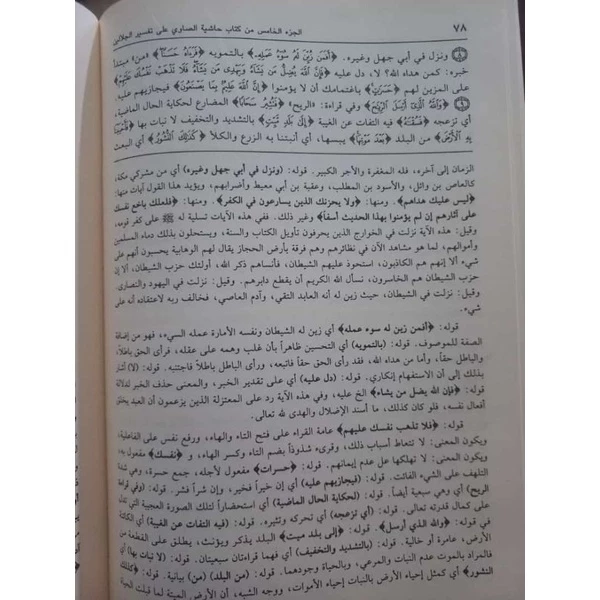 ٧٨ الجزء الخامس من كتاب حاشية الصاوي على تفسير الجلالين
ونزل في أبي جهل وغيره. ﴿أَفَمَن زُيِّنَ لَهُ سُوءُ عَمَلِهِ﴾ بالتمويه ﴿فَرَءَاهُ حَسَنًا﴾ «من» مبتدأ
خبره: كمن هداه الله؟ لا، دل عليه ﴿فَإِنَّ اللَّهَ يُضِلُّ مَن يَشَاءُ وَيَهْدِي مَن يَشَاءُ فَلَا تَذْهَبْ نَفْسُكَ عَلَيْهِمْ﴾
على المزين لهم ﴿حَسَرَاتٍ﴾ باغتمامك أن لا يؤمنوا ﴿إِنَّ اللَّهَ عَلِيمٌ بِمَا يَصْنَعُونَ﴾ فيجازيهم عليه.
﴿وَاللَّهُ الَّذِي أَرْسَلَ الرِّيَاحَ﴾ وفي قراءة: «الريح» ﴿فَتُثِيرُ سَحَابًا﴾ المضارع لحكاية الحال الماضية،
أي تزعجه ﴿فَسُقْنَاهُ﴾ فيه التفات عن الغيبة ﴿إِلَى بَلَدٍ مَّيِّتٍ﴾ بالتشديد والتخفيف لا نبات بها ﴿فَأَحْيَيْنَا
بِهِ الْأَرْضَ﴾ من البلد ﴿بَعْدَ مَوْتِهَا﴾ يبسها، أي أنبتنا به الزرع والكلأ ﴿كَذَلِكَ النُّشُورُ﴾ أي البعث
الزمان إلى آخره، فله المغفرة والأجر الكبير. قوله: (ونزل في أبي جهل وغيره) أي من مشركي مكة،
كالعاص بن وائل، والأسود بن المطلب، وعقبة بن أبي معيط وأضرابهم، ويؤيد هذا القول آيات منها:
﴿ليس عليك هداهم﴾. ومنها: ﴿ولا يحزنك الذين يسارعون في الكفر﴾. ومنها: ﴿فلعلك باخع نفسك
على آثارهم إن لم يؤمنوا بهذا الحديث أسفاً﴾ وغير ذلك. ففي هذه الآيات تسلية له ﷺ على كفر قومه،
وقيل: هذه الآية نزلت في الخوارج الذين يحرفون تأويل الكتاب والسنة، ويستحلون بذلك دماء المسلمين
وأموالهم، لما هو مشاهد الآن في نظائرهم وهم فرقة بأرض الحجاز يقال لهم الوهابية يحسبون أنهم على
شيء ألا إنهم هم الكاذبون، استحوذ عليهم الشيطان، فأنساهم ذكر الله، أولئك حزب الشيطان ألا إن
حزب الشيطان هم الخاسرون، نسأل الله الكريم أن يقطع دابرهم. وقيل: نزلت في اليهود والنصارى.
وقيل: نزلت في الشيطان، حيث زين له أنه العابد التقي، وآدم العاصي، فخالف ربه لاعتقاده أنه على
شيء.
قوله: ﴿أفمن زين له سوء عمله﴾ أي زين له الشيطان ونفسه الأمارة عمله السيء، فهو من إضافة
الصفة للموصوف. قوله: (بالتمويه) أي التحسين ظاهراً بأن غلب وهمه على عقله، فرأى الحق باطلاً،
والباطل حقاً، وأما من هداه الله، فقد رأى الحق حقاً فاتبعه، ورأى الباطل باطلاً فاجتنبه. قوله: (لا) أشار
بذلك، إلى أن الاستفهام إنكاري. قوله: (دل عليه) أي على تقدير الخبر، والمعنى حذف الخبر لدلالة
قوله: ﴿فإن الله يضل من يشاء﴾ الخ عليه، وفي هذه الآية رد على المعتزلة الذين يزعمون أن العبد يخلق
أفعال نفسه، فلو كان كذلك، ما أسند الإضلال والهدى لله تعالى.
قوله: ﴿فلا تذهب نفسك عليهم﴾ عامة القراء على فتح التاء والهاء، ورفع نفس على الفاعلية،
ويكون المعنى: لا تتعاط أسباب ذلك، وقرىء شذوذاً بضم التاء وكسر الهاء، و﴿نفسك﴾ مفعول به،
ويكون المعنى: لا تهلكها على عدم إيمانهم. قوله: ﴿حسرات﴾ مفعول لأجله، جمع حسرة، وهي شدة
التلهف على الشيء الفائت. قوله: (فيجازيهم عليه) أي إن خيراً فخير، وإن شراً فشر. قوله: (وفي قراءة
الريح) أي وهي سبعية أيضاً. قوله: (لحكاية الحال الماضية) أي استحضاراً لتلك الصورة العجيبة التي تدل
على كمال قدرته تعالى. قوله: (أي تزعجه) أي تحركه وتثيره. قوله: (فيه التفات عن الغيبة) أي الكائنة
في قوله: ﴿والله الذي أرسل﴾. قوله: ﴿إلى بلد ميت﴾ البلد يذكر ويؤنث، يطلق على القطعة من
الأرض، عامرة أو خالية. قوله: (بالتشديد والتخفيف) أي فهما قراءتان سبعيتان. قوله: (لا نبات بها) أي
فالمراد بالموت عدم النبات والمرعى، وبالحياة وجودهما. قوله: (من البلد) (من) بيانية. قوله: ﴿كذلك
النشور﴾ أي كمثل إحياء الأرض بالنبات إحياء الأموات، ووجه الشبه، أن الأرض الميتة لما قبلت الحياة